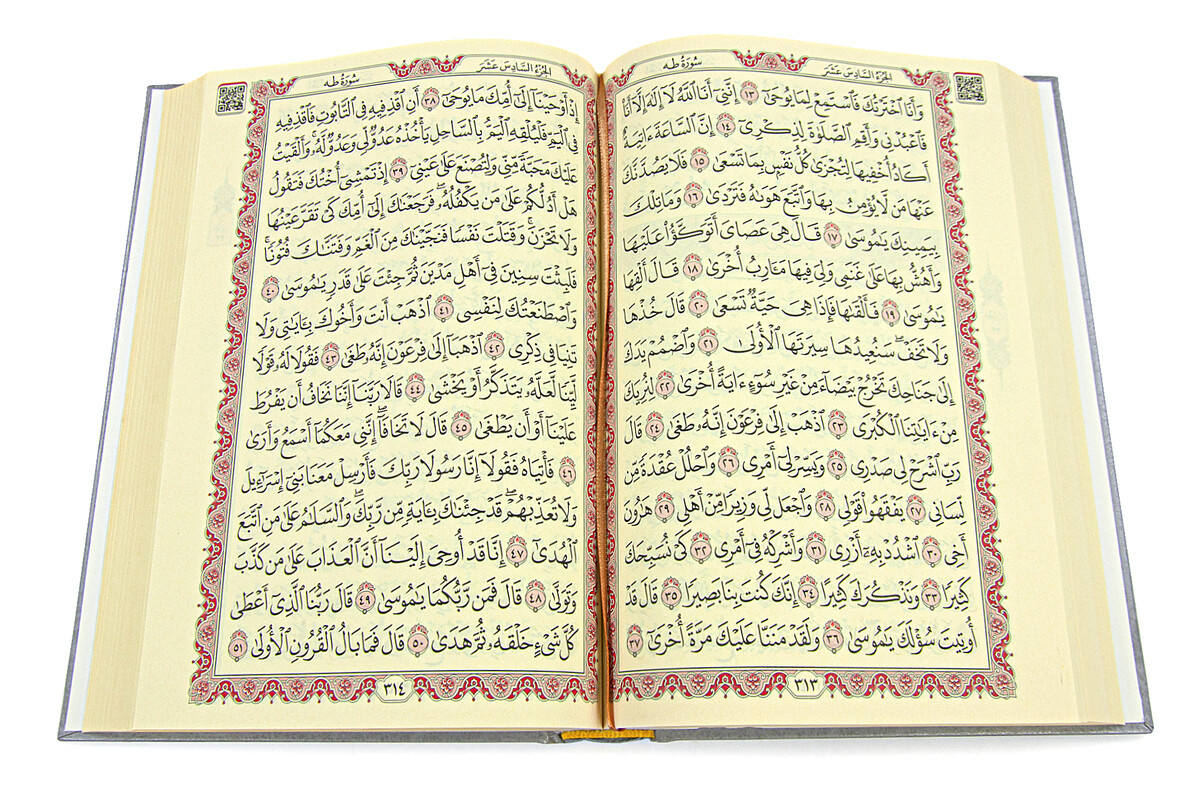 الجُزْءُ السَّادِسَ عَشَرَ
سُورَةُ طه
وَأَنَا ٱخْتَرْتُكَ فَٱسْتَمِعْ لِمَا يُوحَىٰٓ ١٣ إِنَّنِيٓ أَنَا ٱللَّهُ لَآ إِلَٰهَ إِلَّآ أَنَا۠
فَٱعْبُدْنِي وَأَقِمِ ٱلصَّلَوٰةَ لِذِكْرِيٓ ١٤ إِنَّ ٱلسَّاعَةَ ءَاتِيَةٌ
أَكَادُ أُخْفِيهَا لِتُجْزَىٰ كُلُّ نَفْسٍۭ بِمَا تَسْعَىٰ ١٥ فَلَا يَصُدَّنَّكَ
عَنْهَا مَن لَّا يُؤْمِنُ بِهَا وَٱتَّبَعَ هَوَىٰهُ فَتَرْدَىٰ ١٦ وَمَا تِلْكَ
بِيَمِينِكَ يَٰمُوسَىٰ ١٧ قَالَ هِيَ عَصَايَ أَتَوَكَّؤُا۟ عَلَيْهَا
وَأَهُشُّ بِهَا عَلَىٰ غَنَمِي وَلِيَ فِيهَا مَـَٔارِبُ أُخْرَىٰ ١٨ قَالَ أَلْقِهَا
يَٰمُوسَىٰ ١٩ فَأَلْقَىٰهَا فَإِذَا هِيَ حَيَّةٌ تَسْعَىٰ ٢٠ قَالَ خُذْهَا
وَلَا تَخَفْ ۖ سَنُعِيدُهَا سِيرَتَهَا ٱلْأُولَىٰ ٢١ وَٱضْمُمْ يَدَكَ
إِلَىٰ جَنَاحِكَ تَخْرُجْ بَيْضَآءَ مِنْ غَيْرِ سُوٓءٍ ءَايَةً أُخْرَىٰ ٢٢ لِنُرِيَكَ
مِنْ ءَايَٰتِنَا ٱلْكُبْرَى ٢٣ ٱذْهَبْ إِلَىٰ فِرْعَوْنَ إِنَّهُۥ طَغَىٰ ٢٤ قَالَ
رَبِّ ٱشْرَحْ لِي صَدْرِي ٢٥ وَيَسِّرْ لِيٓ أَمْرِي ٢٦ وَٱحْلُلْ عُقْدَةً مِّن
لِّسَانِي ٢٧ يَفْقَهُوا۟ قَوْلِي ٢٨ وَٱجْعَل لِّي وَزِيرًا مِّنْ أَهْلِي ٢٩ هَٰرُونَ
أَخِي ٣٠ ٱشْدُدْ بِهِۦٓ أَزْرِي ٣١ وَأَشْرِكْهُ فِيٓ أَمْرِي ٣٢ كَيْ نُسَبِّحَكَ
كَثِيرًا ٣٣ وَنَذْكُرَكَ كَثِيرًا ٣٤ إِنَّكَ كُنتَ بِنَا بَصِيرًا ٣٥ قَالَ قَدْ
أُوتِيتَ سُؤْلَكَ يَٰمُوسَىٰ ٣٦ وَلَقَدْ مَنَنَّا عَلَيْكَ مَرَّةً أُخْرَىٰٓ ٣٧
٣١٣
الجُزْءُ السَّادِسَ عَشَرَ
سُورَةُ طه
إِذْ أَوْحَيْنَآ إِلَىٰٓ أُمِّكَ مَا يُوحَىٰٓ ٣٨ أَنِ ٱقْذِفِيهِ فِي ٱلتَّابُوتِ فَٱقْذِفِيهِ
فِي ٱلْيَمِّ فَلْيُلْقِهِ ٱلْيَمُّ بِٱلسَّاحِلِ يَأْخُذْهُ عَدُوٌّ لِّي وَعَدُوٌّ لَّهُۥ ۚ وَأَلْقَيْتُ
عَلَيْكَ مَحَبَّةً مِّنِّي وَلِتُصْنَعَ عَلَىٰ عَيْنِيٓ ٣٩ إِذْ تَمْشِيٓ أُخْتُكَ فَتَقُولُ
هَلْ أَدُلُّكُمْ عَلَىٰ مَن يَكْفُلُهُۥ ۖ فَرَجَعْنَٰكَ إِلَىٰٓ أُمِّكَ كَيْ تَقَرَّ عَيْنُهَا
وَلَا تَحْزَنَ ۚ وَقَتَلْتَ نَفْسًا فَنَجَّيْنَٰكَ مِنَ ٱلْغَمِّ وَفَتَنَّٰكَ فُتُونًا ۚ
فَلَبِثْتَ سِنِينَ فِيٓ أَهْلِ مَدْيَنَ ثُمَّ جِئْتَ عَلَىٰ قَدَرٍ يَٰمُوسَىٰ ٤٠
وَٱصْطَنَعْتُكَ لِنَفْسِي ٤١ ٱذْهَبْ أَنتَ وَأَخُوكَ بِـَٔايَٰتِي وَلَا
تَنِيَا فِي ذِكْرِي ٤٢ ٱذْهَبَآ إِلَىٰ فِرْعَوْنَ إِنَّهُۥ طَغَىٰ ٤٣ فَقُولَا لَهُۥ قَوْلًا
لَّيِّنًا لَّعَلَّهُۥ يَتَذَكَّرُ أَوْ يَخْشَىٰ ٤٤ قَالَا رَبَّنَآ إِنَّنَا نَخَافُ أَن يَفْرُطَ
عَلَيْنَآ أَوْ أَن يَطْغَىٰ ٤٥ قَالَ لَا تَخَافَآ ۖ إِنَّنِي مَعَكُمَآ أَسْمَعُ وَأَرَىٰ
٤٦ فَأْتِيَاهُ فَقُولَآ إِنَّا رَسُولَا رَبِّكَ فَأَرْسِلْ مَعَنَا بَنِيٓ إِسْرَٰٓءِيلَ
وَلَا تُعَذِّبْهُمْ ۖ قَدْ جِئْنَٰكَ بِـَٔايَةٍ مِّن رَّبِّكَ ۖ وَٱلسَّلَٰمُ عَلَىٰ مَنِ ٱتَّبَعَ
ٱلْهُدَىٰٓ ٤٧ إِنَّا قَدْ أُوحِيَ إِلَيْنَآ أَنَّ ٱلْعَذَابَ عَلَىٰ مَن كَذَّبَ
وَتَوَلَّىٰ ٤٨ قَالَ فَمَن رَّبُّكُمَا يَٰمُوسَىٰ ٤٩ قَالَ رَبُّنَا ٱلَّذِيٓ أَعْطَىٰ
كُلَّ شَيْءٍ خَلْقَهُۥ ثُمَّ هَدَىٰ ٥٠ قَالَ فَمَا بَالُ ٱلْقُرُونِ ٱلْأُولَىٰ ٥١
٣١٤